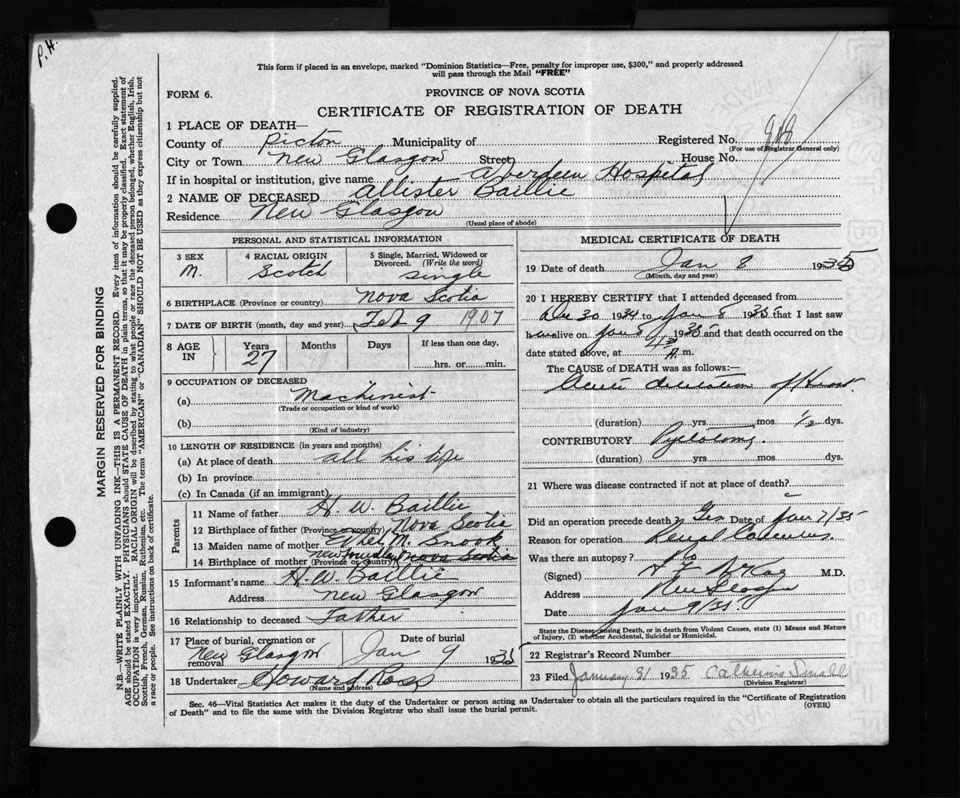 P.H.
This form if placed in an envelope, marked "Dominion Statistics—Free, penalty for improper use, $300," and properly addressed
will pass through the Mail "FREE"
FORM 6.
PROVINCE OF NOVA SCOTIA
CERTIFICATE OF REGISTRATION OF DEATH
1 PLACE OF DEATH—
County of Picton Municipality of Registered No.
(For use of Registrar General only)
City or Town New Glasgow Street House No.
If in hospital or institution, give name Aberdeen Hospital
2 NAME OF DECEASED Allister Baillie
Residence New Glasgow
(Usual place of abode)
PERSONAL AND STATISTICAL INFORMATION
3 SEX
M.
4 RACIAL ORIGIN
Scotch
5 Single, Married, Widowed or
Divorced. (Write the word)
Single
6 BIRTHPLACE (Province or country) Nova Scotia
7 DATE OF BIRTH (month, day and year) Feb 9 1907
8 AGE IN
Years Months Days If less than one day,
27
hrs. or min.
9 OCCUPATION OF DECEASED
(a) Machinist
(Trade or occupation or kind of work)
(b)
(Kind of industry)
10 LENGTH OF RESIDENCE (in years and months)
(a) At place of death all his life
(b) In province
(c) In Canada (if an immigrant)
Parents
11 Name of father H. W. Baillie
12 Birthplace of father (Province or country) Nova Scotia
13 Maiden name of mother Ethel M. Snook
14 Birthplace of mother (Province or country) Nova Scotia
15 Informant's name H. W. Baillie
Address New Glasgow
16 Relationship to deceased Father
17 Place of burial, cremation or removal New Glasgow
Date of burial
Jan 9 1935
18 Undertaker Howard Ross
(Name and address)
MEDICAL CERTIFICATE OF DEATH
19 Date of death Jan 8 1935
(Month, day and year)
20 I HEREBY CERTIFY that I attended deceased from
Dec 30 1934 to Jan 8 1935 that I last saw
h alive on Jan 8 1935 and that death occurred on
date stated above, at A.m.
The CAUSE of DEATH was as follows:—
Acute dilatation of Heart
(duration) yrs mos ½ dys.
CONTRIBUTORY Pyelotomy.
(duration) yrs mos dys.
21 Where was disease contracted if not at place of death?
Did an operation precede death? Yes Date of Jan 7/35
Reason for operation Renal Calculus.
Was there an autopsy? No
(Signed) M.D.
Address New Glasgow
Date Jan 9/35.
State the Disease causing Death, or in death from Violent Causes, state (1) Means and Nature
of Injury, (2) whether Accidental, Suicidal or Homicidal.
22 Registrar's Record Number
23 Filed January 31 1935 Catherine Small
(Division Registrar)
Sec. 46—Vital Statistics Act makes it the duty of the Undertaker or person acting as Undertaker to obtain all the particulars required in the "Certificate of Registration
of Death" and to file the same with the Division Registrar who shall issue the burial permit.
(OVER)
MARGIN RESERVED FOR BINDING
N.B.—WRITE PLAINLY WITH UNFADING INK—THIS IS A PERMANENT RECORD. Every item of information should be carefully supplied.
AGE should be stated EXACTLY. PHYSICIANS should STATE CAUSE OF DEATH in plain terms, so that it may be properly classified. Exact statement of
OCCUPATION is very important. RACIAL ORIGIN will be described by stating to what people or race the deceased person belonged, whether English, Irish,
Scottish, French, German, Russian, Ruthenian, etc. The terms "AMERICAN" or "CANADIAN" SHOULD NOT BE USED as they express citizenship but not
a race or people. See instructions on back of certificate.